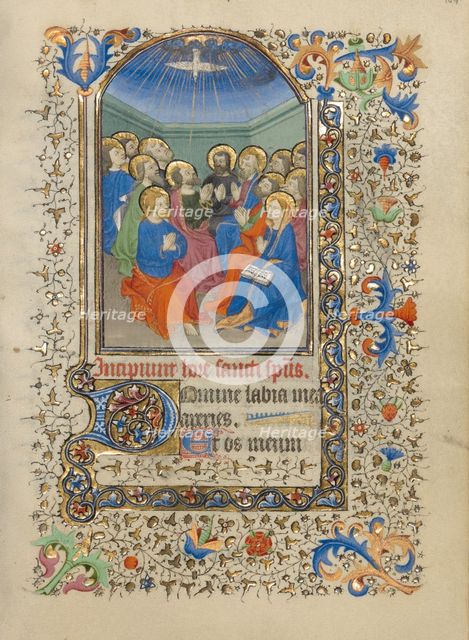 Incipiunt hore sancti spūs.
Domine labia mea
aperies.
Et os meum
Heritage
Heritage
Heritage
Heritage
Heritage
Heritage